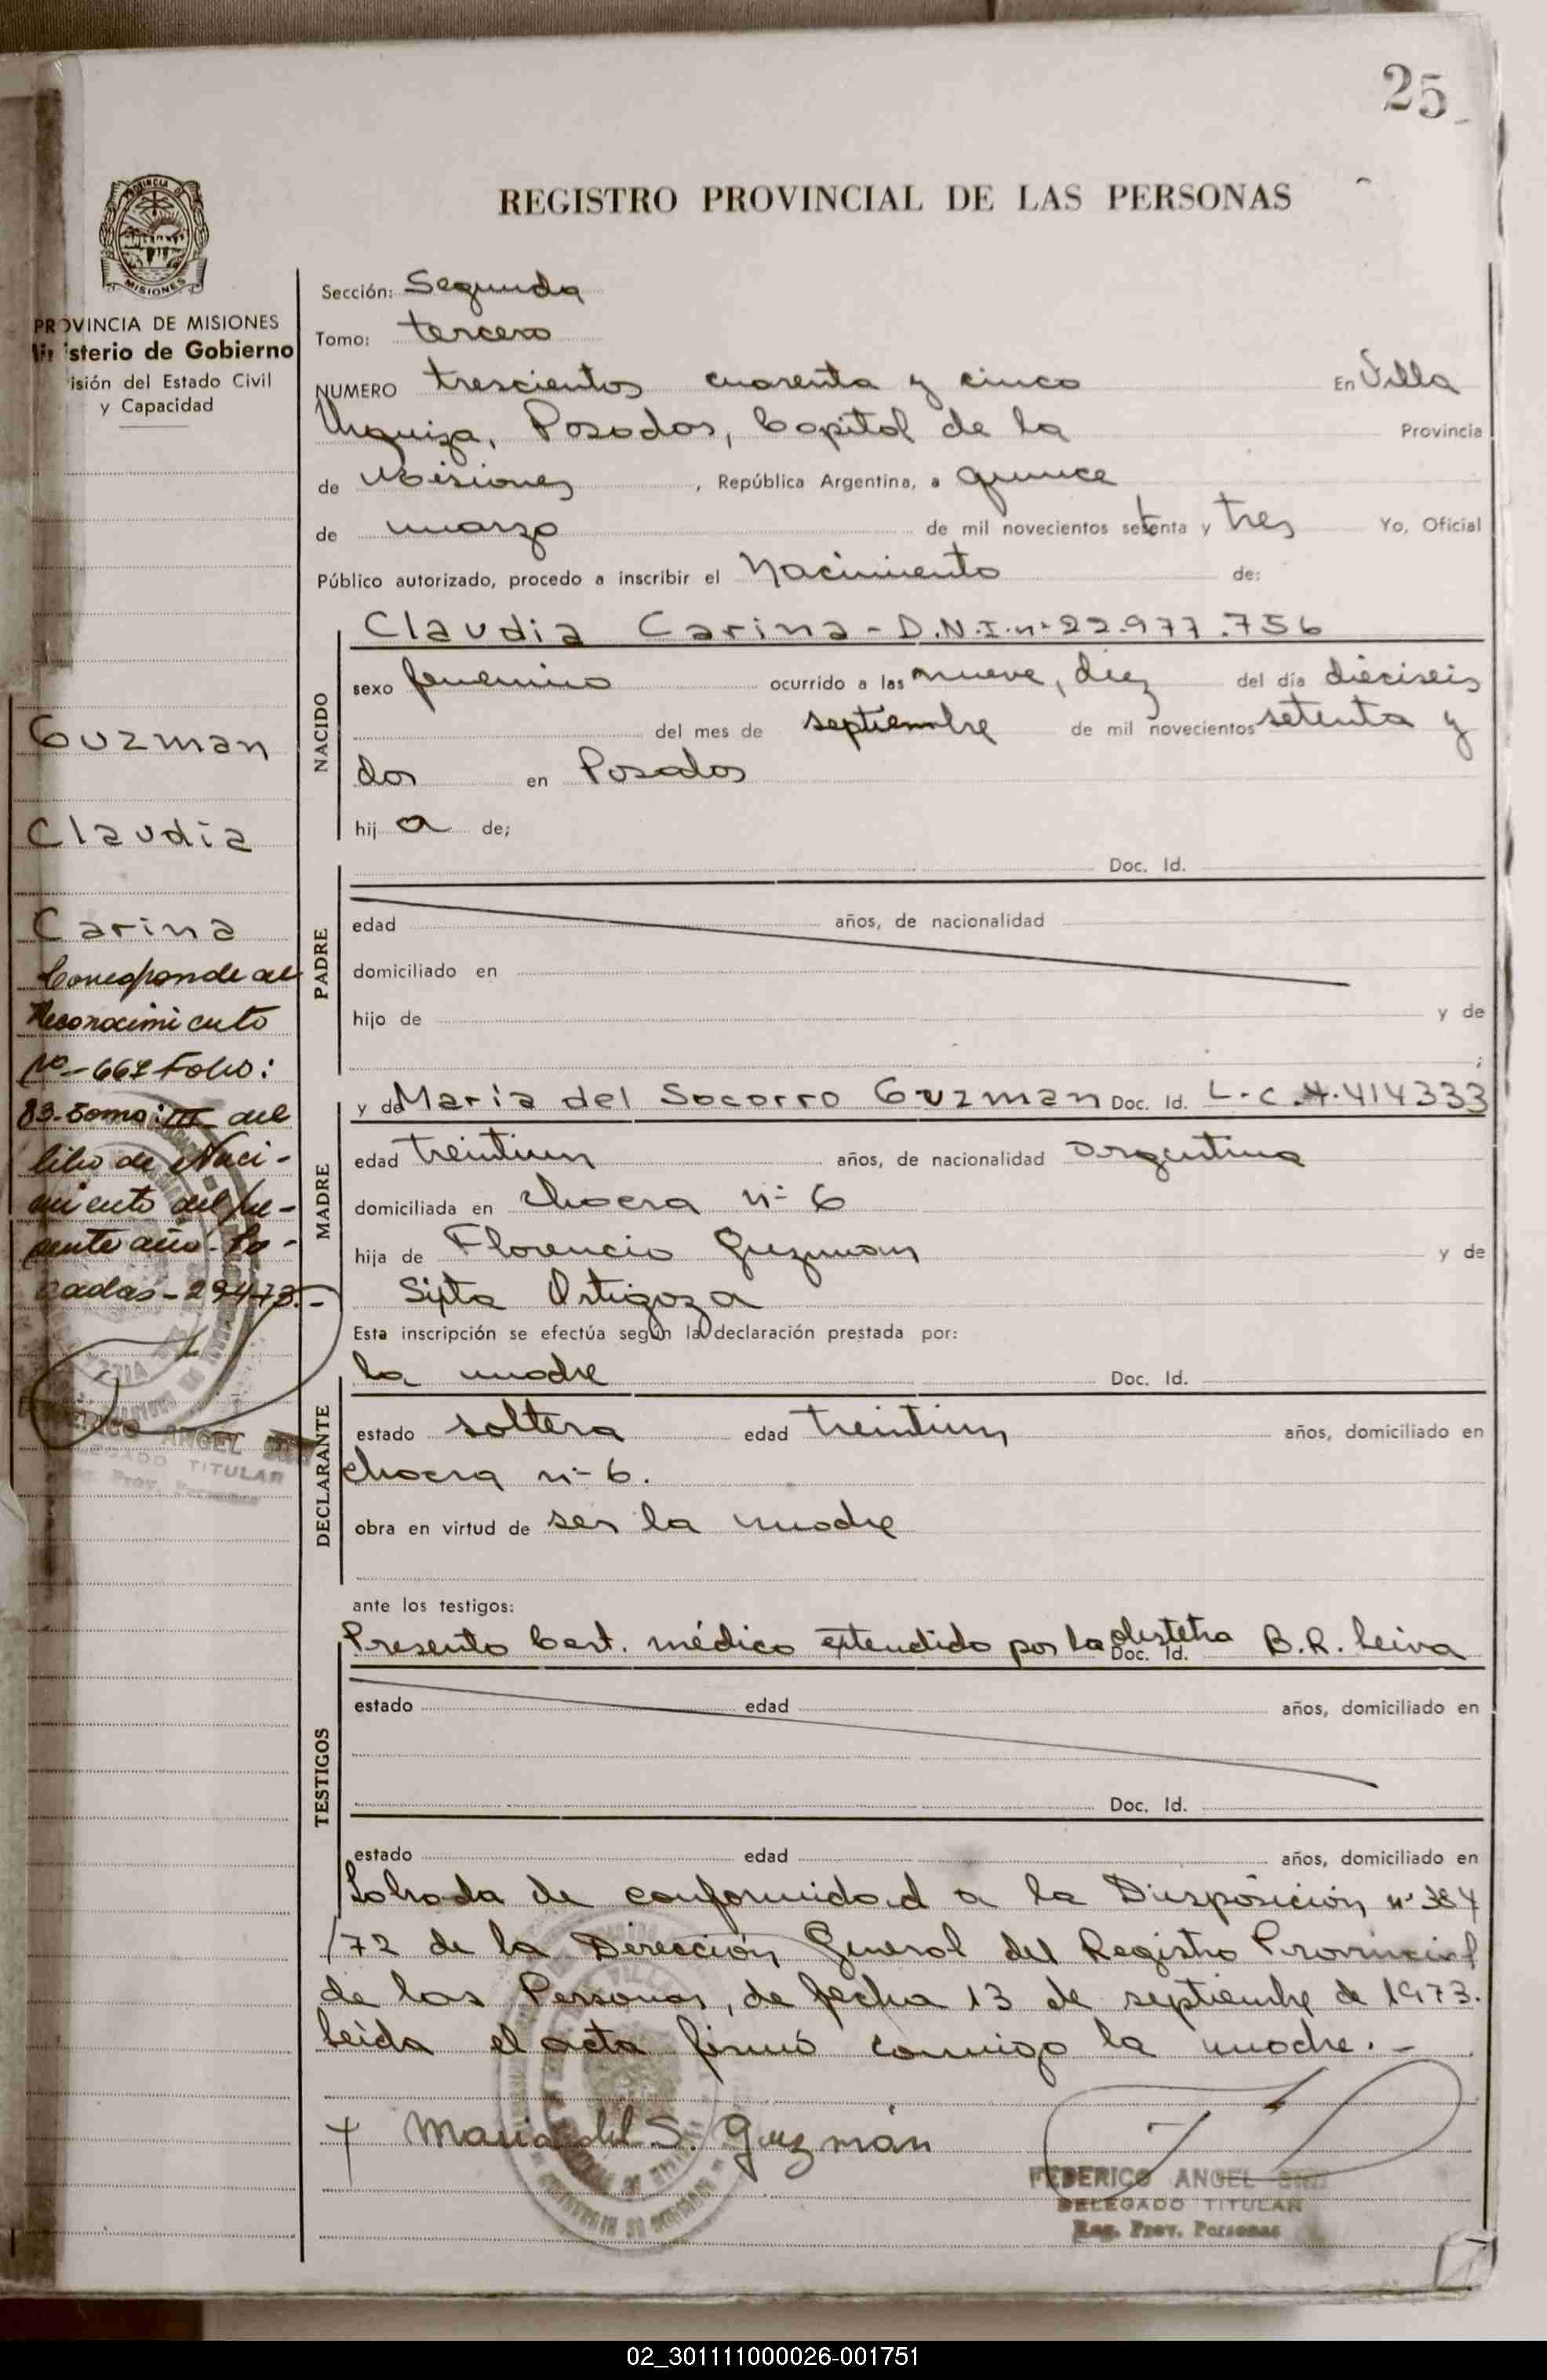 25
REGISTRO PROVINCIAL DE LAS PERSONAS
PROVINCIA DE MISIONES
Ministerio de Gobierno
isión del Estado Civil
y Capacidad
Sección: Segunda
Tomo: tercero
NUMERO trescientos cuarenta y cinco En Villa
Urquiza, Posadas, Capital de la Provincia
de Misiones, República Argentina, a quince
de marzo de mil novecientos setenta y tres Yo, Oficial
Público autorizado, procedo a inscribir el Nacimiento de:
NACIDO
Claudia Carina - D.N.I. nº 22.977.756
sexo femenino ocurrido a las nueve, diez del día dieciseis
del mes de septiembre de mil novecientos setenta y
dos en Posadas
hij a de;
Guzman
Claudia
Carina
Corresponde al
Reconocimiento
Nº - 667 Folio:
83 - Tomo: III del
libro de Naci-
miento del pre-
sente año - Po-
sadas - 29-4-73.-
ANGEL
DELEGADO TITULAR
Reg. Prov. Personas
PADRE
Doc. Id.
edad años, de nacionalidad
domiciliado en
hijo de y de
;
MADRE
y de Maria del Socorro Guzman Doc. Id. L.C. 4.414333
edad treintiun años, de nacionalidad argentina
domiciliada en chacra nº 6
hija de Florencio Guzman y de
Sixta Ortigoza
Esta inscripción se efectúa según la declaración prestada por:
DECLARANTE
la madre Doc. Id.
estado soltera edad treintiun años, domiciliado en
chacra nº 6.
obra en virtud de ser la madre
ante los testigos:
TESTIGOS
Presento Cert. médico extendido por la obstetra Doc. Id. B.R. Leiva
estado edad años, domiciliado en
Doc. Id.
estado edad años, domiciliado en
Labrada de conformidad a la Disposición nº 384
/72 de la Dirección General del Registro Provincial
de las Personas, de fecha 13 de septiembre de 1973.
Leida el acta firmó conmigo la madre. -
Maria del S. Guzmán
FEDERICO ANGEL
DELEGADO TITULAR
Reg. Prov. Personas
02_301111000026-001751